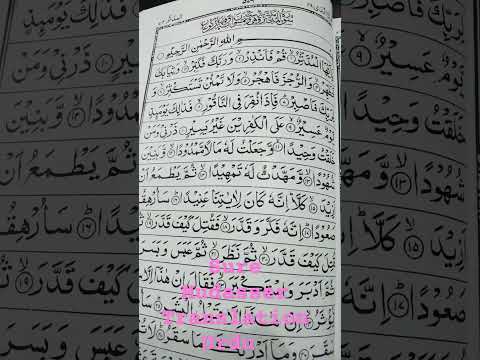 بِسْمِ اللهِ الرَّحْمٰنِ الرَّحِيْمِ
يٰۤاَيُّهَا الْمُدَّثِّرُ ① قُمْ فَاَنْذِرْ ② وَرَبَّكَ فَكَبِّرْ ③ وَثِيَابَكَ
فَطَهِّرْ ④ وَالرُّجْزَ فَاهْجُرْ ⑤ وَلَا تَمْنُنْ تَسْتَكْثِرُ ⑥
وَلِرَبِّكَ فَاصْبِرْ ⑦ فَاِذَا نُقِرَ فِی النَّاقُوْرِ ⑧ فَذٰلِكَ يَوْمَئِذٍ
يَّوْمٌ عَسِيْرٌ ⑨ عَلَى الْكٰفِرِيْنَ غَيْرُ يَسِيْرٍ ⑩ ذَرْنِیْ وَمَنْ
خَلَقْتُ وَحِيْدًا ⑪ وَّجَعَلْتُ لَهٗ مَالًا مَّمْدُوْدًا ⑫ وَّبَنِيْنَ
شُهُوْدًا ⑬ وَّمَهَّدْتُّ لَهٗ تَمْهِيْدًا ⑭ ثُمَّ يَطْمَعُ اَنْ
اَزِيْدَ ⑮ كَلَّا ؕ اِنَّهٗ كَانَ لِاٰيٰتِنَا عَنِيْدًا ⑯ سَاُرْهِقُهٗ
صَعُوْدًا ⑰ اِنَّهٗ فَكَّرَ وَقَدَّرَ ⑱ فَقُتِلَ كَيْفَ قَدَّرَ ⑲
ثُمَّ قُتِلَ كَيْفَ قَدَّرَ ⑳ ثُمَّ نَظَرَ ㉑ ثُمَّ عَبَسَ وَبَسَرَ
ثُمَّ اَدْبَرَ وَاسْتَكْبَرَ فَقَالَ اِنْ هٰذَاۤ اِلَّا
Sure
Mudasser
Translation
Urdu